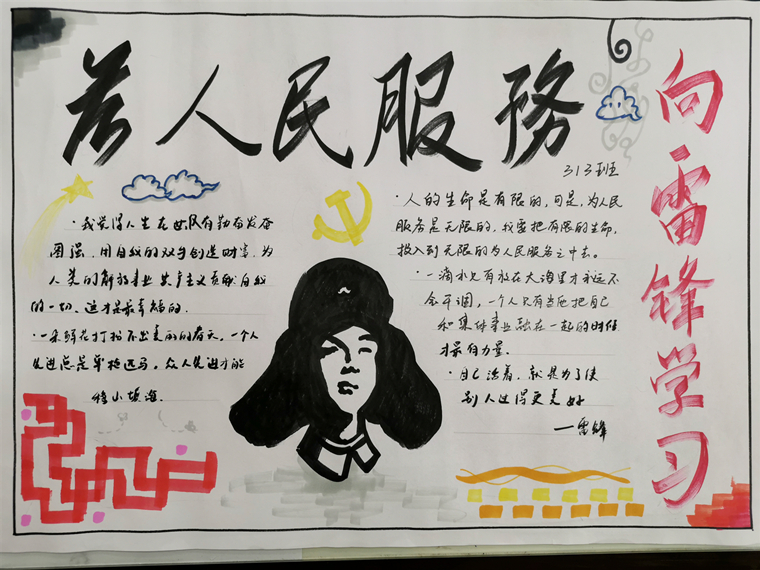 为人民服務
向雷锋学习
313班
·我觉得人生在世,只有勤劳发奋
图强,用自己的双手创造财富,为
人类的解放事业共产主义贡献自己
的一切,这才是最幸福的.
·一朵鲜花打扮不出美丽的春天,一个人
先进总是单枪匹马,众人先进才能
移山填海.
·人的生命是有限的,可是,为人民
服务是无限的,我要把有限的生命,
投入到无限的为人民服务之中去。
·一滴水只有放在大海里才永远不
会干涸,一个人只有当他把自己
和集体事业融在一起的时候
才最有力量.
·自己活着,就是为了使
别人过得更美好
—雷锋